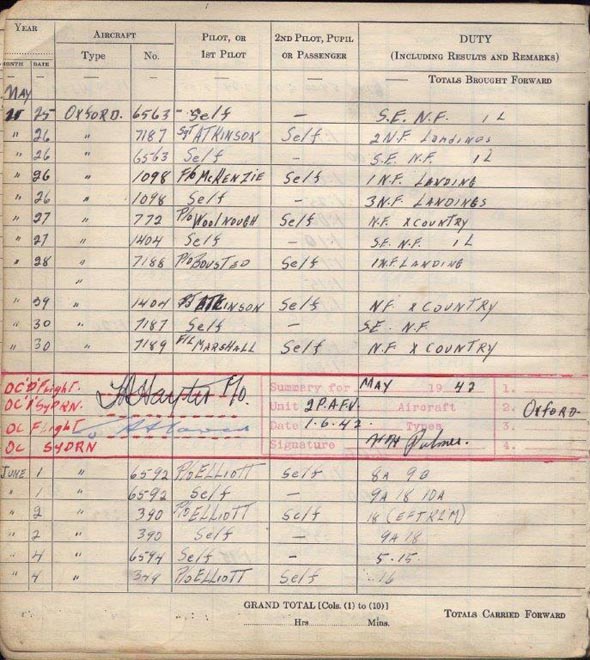 YEAR AIRCRAFT PILOT, OR 1ST PILOT 2ND PILOT, PUPIL OR PASSENGER DUTY (INCLUDING RESULTS AND REMARKS)
MONTH DATE Type No.
— — — — — — — TOTALS BROUGHT FORWARD
MAY
25 OXFORD. 6563 Self — S.E. N.F. 1L
" 26 " 7187 Sgt ATKINSON Self 2 N.F. Landings
" 26 " 6563 Self — S.E. N.F. 1L
" 26 " 1098 P/o McKENZIE Self 1 N.F. LANDING
" 26 " 1098 Self — 3 N.F. LANDINGS
" 27 " 772 P/o WOOLNOUGH Self N.F. X COUNTRY
" 27 " 1404 Self — S.E. N.F. 1L
" 28 " 7188 P/o BOUSTED Self 1 N.F. LANDING
"
" 29 " 1404 ATKINSON Self N.F. X COUNTRY
" 30 " 7187 Self — S.E. N.F.
" 30 " 7189 F/L MARSHALL Self N.F X COUNTRY
OC 'D' Flight. Summary for MAY 1942 1.
Unit 2 P.A.F.U. Aircraft 2. OXFORD
OC Flight Date 1.6.42. Types 3.
OC SQDRN Signature Palmer. 4.
JUNE 1 " 6592 P/o ELLIOTT Self 8A 9B
" 1 " 6592 Self — 9A 18 10A
" 2 " 390 P/o ELLIOTT Self 18
" 2 " 390 Self — 9A 18
" 4 " 6594 Self — 5-15.
" 4 " P/o ELLIOTT Self 16
GRAND TOTAL [Cols. (1) to (10)] TOTALS CARRIED FORWARD
Hrs Mins.